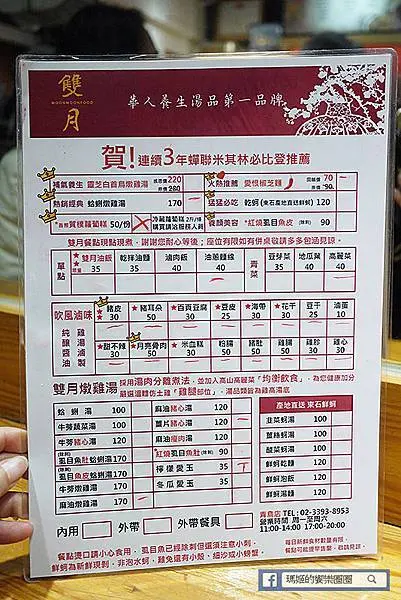 雙月
MOONMOONFOOD
華人養生湯品第一品牌
賀!連續3年蟬聯米其林必比登推薦
補氣養生 靈芝白首烏燉雞湯 220
熱銷經典 蛤蜊燉雞湯 170
質樸蘿蔔糕 50/份
冷藏蘿蔔糕
購買請洽服務人員
火熱推薦 愛恨椒芝麵 70 90
猛猛必吃 乾蚵(東石產地直送鮮蚵) 120
養顏美容 *紅燒虱目魚皮 90
雙月餐點現點現煮，謝謝您耐心等後；座位有限如有併桌敬請多多包涵見諒。
單點
雙月油飯 35
乾拌油麵 35
滷肉飯 40
油蔥麵線 35
青菜
豆芽菜 35
地瓜葉 40
高麗菜 40
吹風滷味
純釀醬油
雞湯滷製
豬皮 30
豬耳朵 50
百頁豆腐 30
豆皮 25
海帶 30
花干 30
豆干 25
滷蛋 10
甜不辣 30
月亮骨肉 50
米血糕 30
粉腸 50
豬肚 50
雞腸 50
雞胗 50
雞心 30
雙月燉雞湯
採用湯肉分離煮法，並加入高山高麗菜「均衡飲食」，為您健康加分
嚴選溫體仿土雞「雞腿部位」，湯品類皆為雞高湯底
蛤蜊湯 100
牛蒡蔬菜湯 100
牛蒡豬心湯 120
虱目魚肚蛤蜊湯 170
虱目魚皮蛤蜊湯 170
牛蒡燉雞湯 170
麻油燉雞湯 170
麻油豬心湯 120
薑片豬心湯 120
麻油瘦肉湯 120
紅燒虱目魚肚 90
檸檬愛玉 35
冬瓜愛玉 35
產地直送 東石鮮蚵
韭菜蚵湯 100
薑絲蚵湯 100
酸菜蚵湯 100
鮮蚵乾麵 120
鮮蚵泡飯 120
鮮蚵湯麵 120
內用
外帶
外帶餐具
青島店 TEL: 02-3393-8953
營業時間 周一至周六
11:00-14:00 17:00-20:00
餐點燙口請小心食用，虱目魚已經除刺但還須注意小刺，
鮮蚵為新鮮現剝，非泡水蚵，難免還有小殼、細沙或小螃蟹。
每日新鮮食材數量有限，
餐點可能提早售罄，敬請見諒。
瑪姬的賓樂圈圈